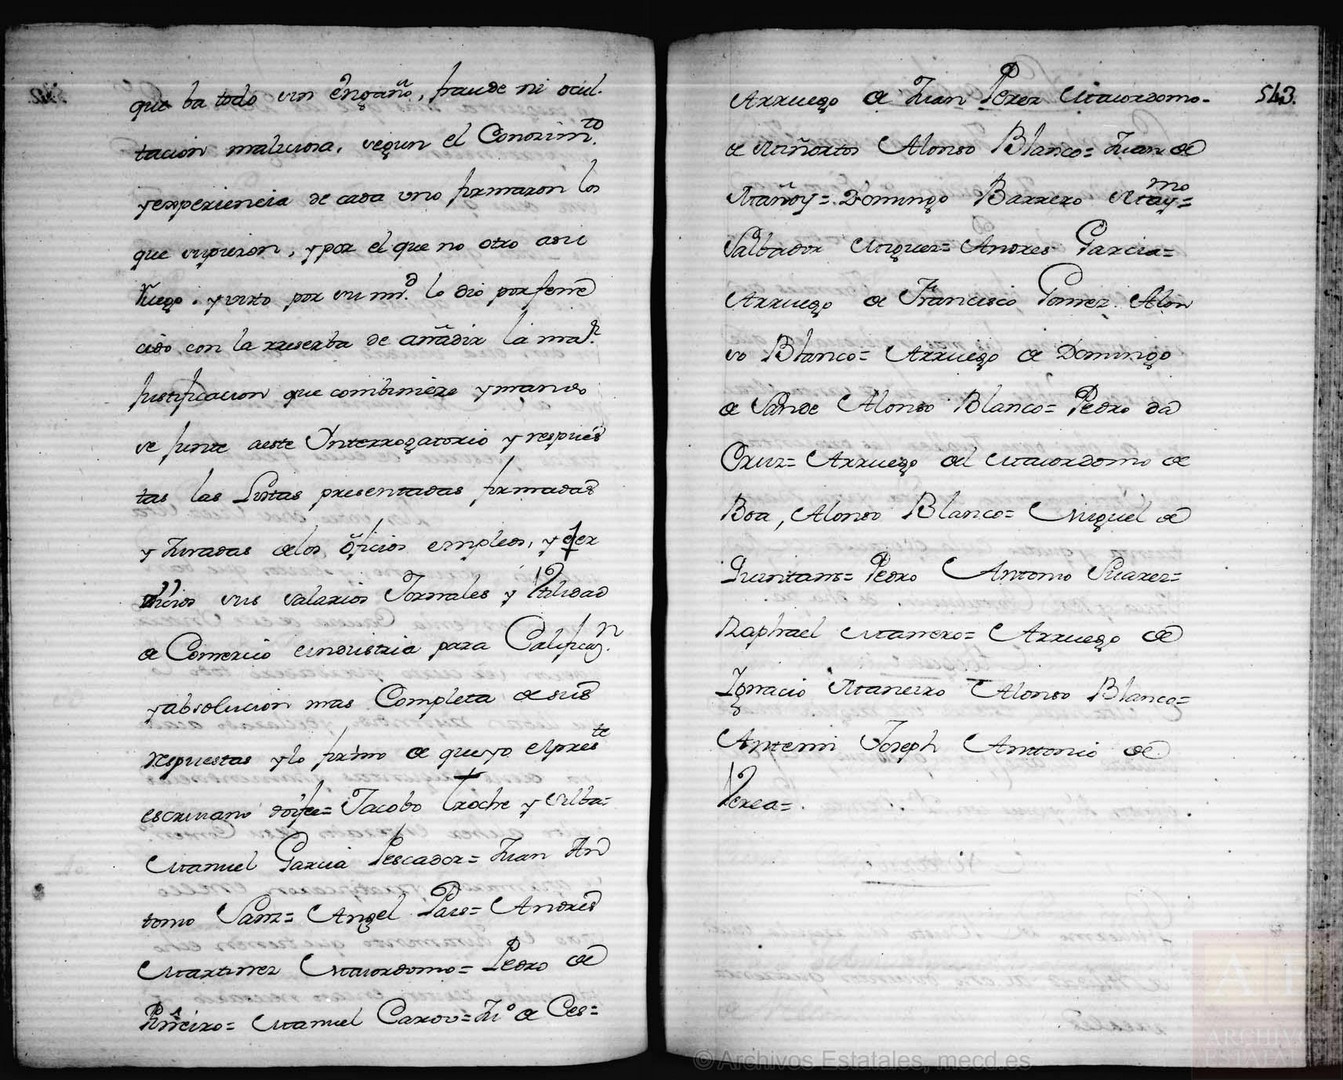 que ba todo sin engaño, fraude ni ocul-
tacion maliciosa, segun el Conozim.to
y experiencia de cada uno firmaron los
que supieron, y por el que no otro asu
Ruego, y visto por su m.d lo dio por fene
cido con la rreserba de añadir la ma.r
Justificacion que combiniere y mando
se junte aeste Interrogatorio y respues
tas las Listas presentadas firmadas
y Juradas de los oficios empleos, y exer
cicios sus salarios Jornales y Utilidad
de Comercio eindustria para Calificaz.n
y absolucion mas Completa de sus
respuestas y lo firmo de que yo el pres.te
escrivano doife= Jacobo Troche y Silba=
Manuel Garcia Pescador= Juan An
tonio Sanz= Angel Pais= Andres
Martinez Maiordomo= Pedro de
Piñeiro= Manuel Caxov= Ju.o de Ces=
Arruego de Juan Perez Maiordomo-
de Miñortos Alonso Blanco= Juan de
Mañoy= Domingo Barrero May.mo=
Salbador Miguez= Andres Garcia=
Arruego de Francisco Gomez Alon
so Blanco= Arruego de Domingo
de Sande Alonso Blanco= Pedro da
Cruz= Arruego del Maiordomo de
Boa, Alonso Blanco= Miguel de
Quintans= Pedro Antonio Suarez=
Raphael Maneiro= Arruego de
Ignacio Maneiro Alonso Blanco=
Antemi Joseph Antonio de
Verea=
543.
© Archivos Estatales, mecd.es